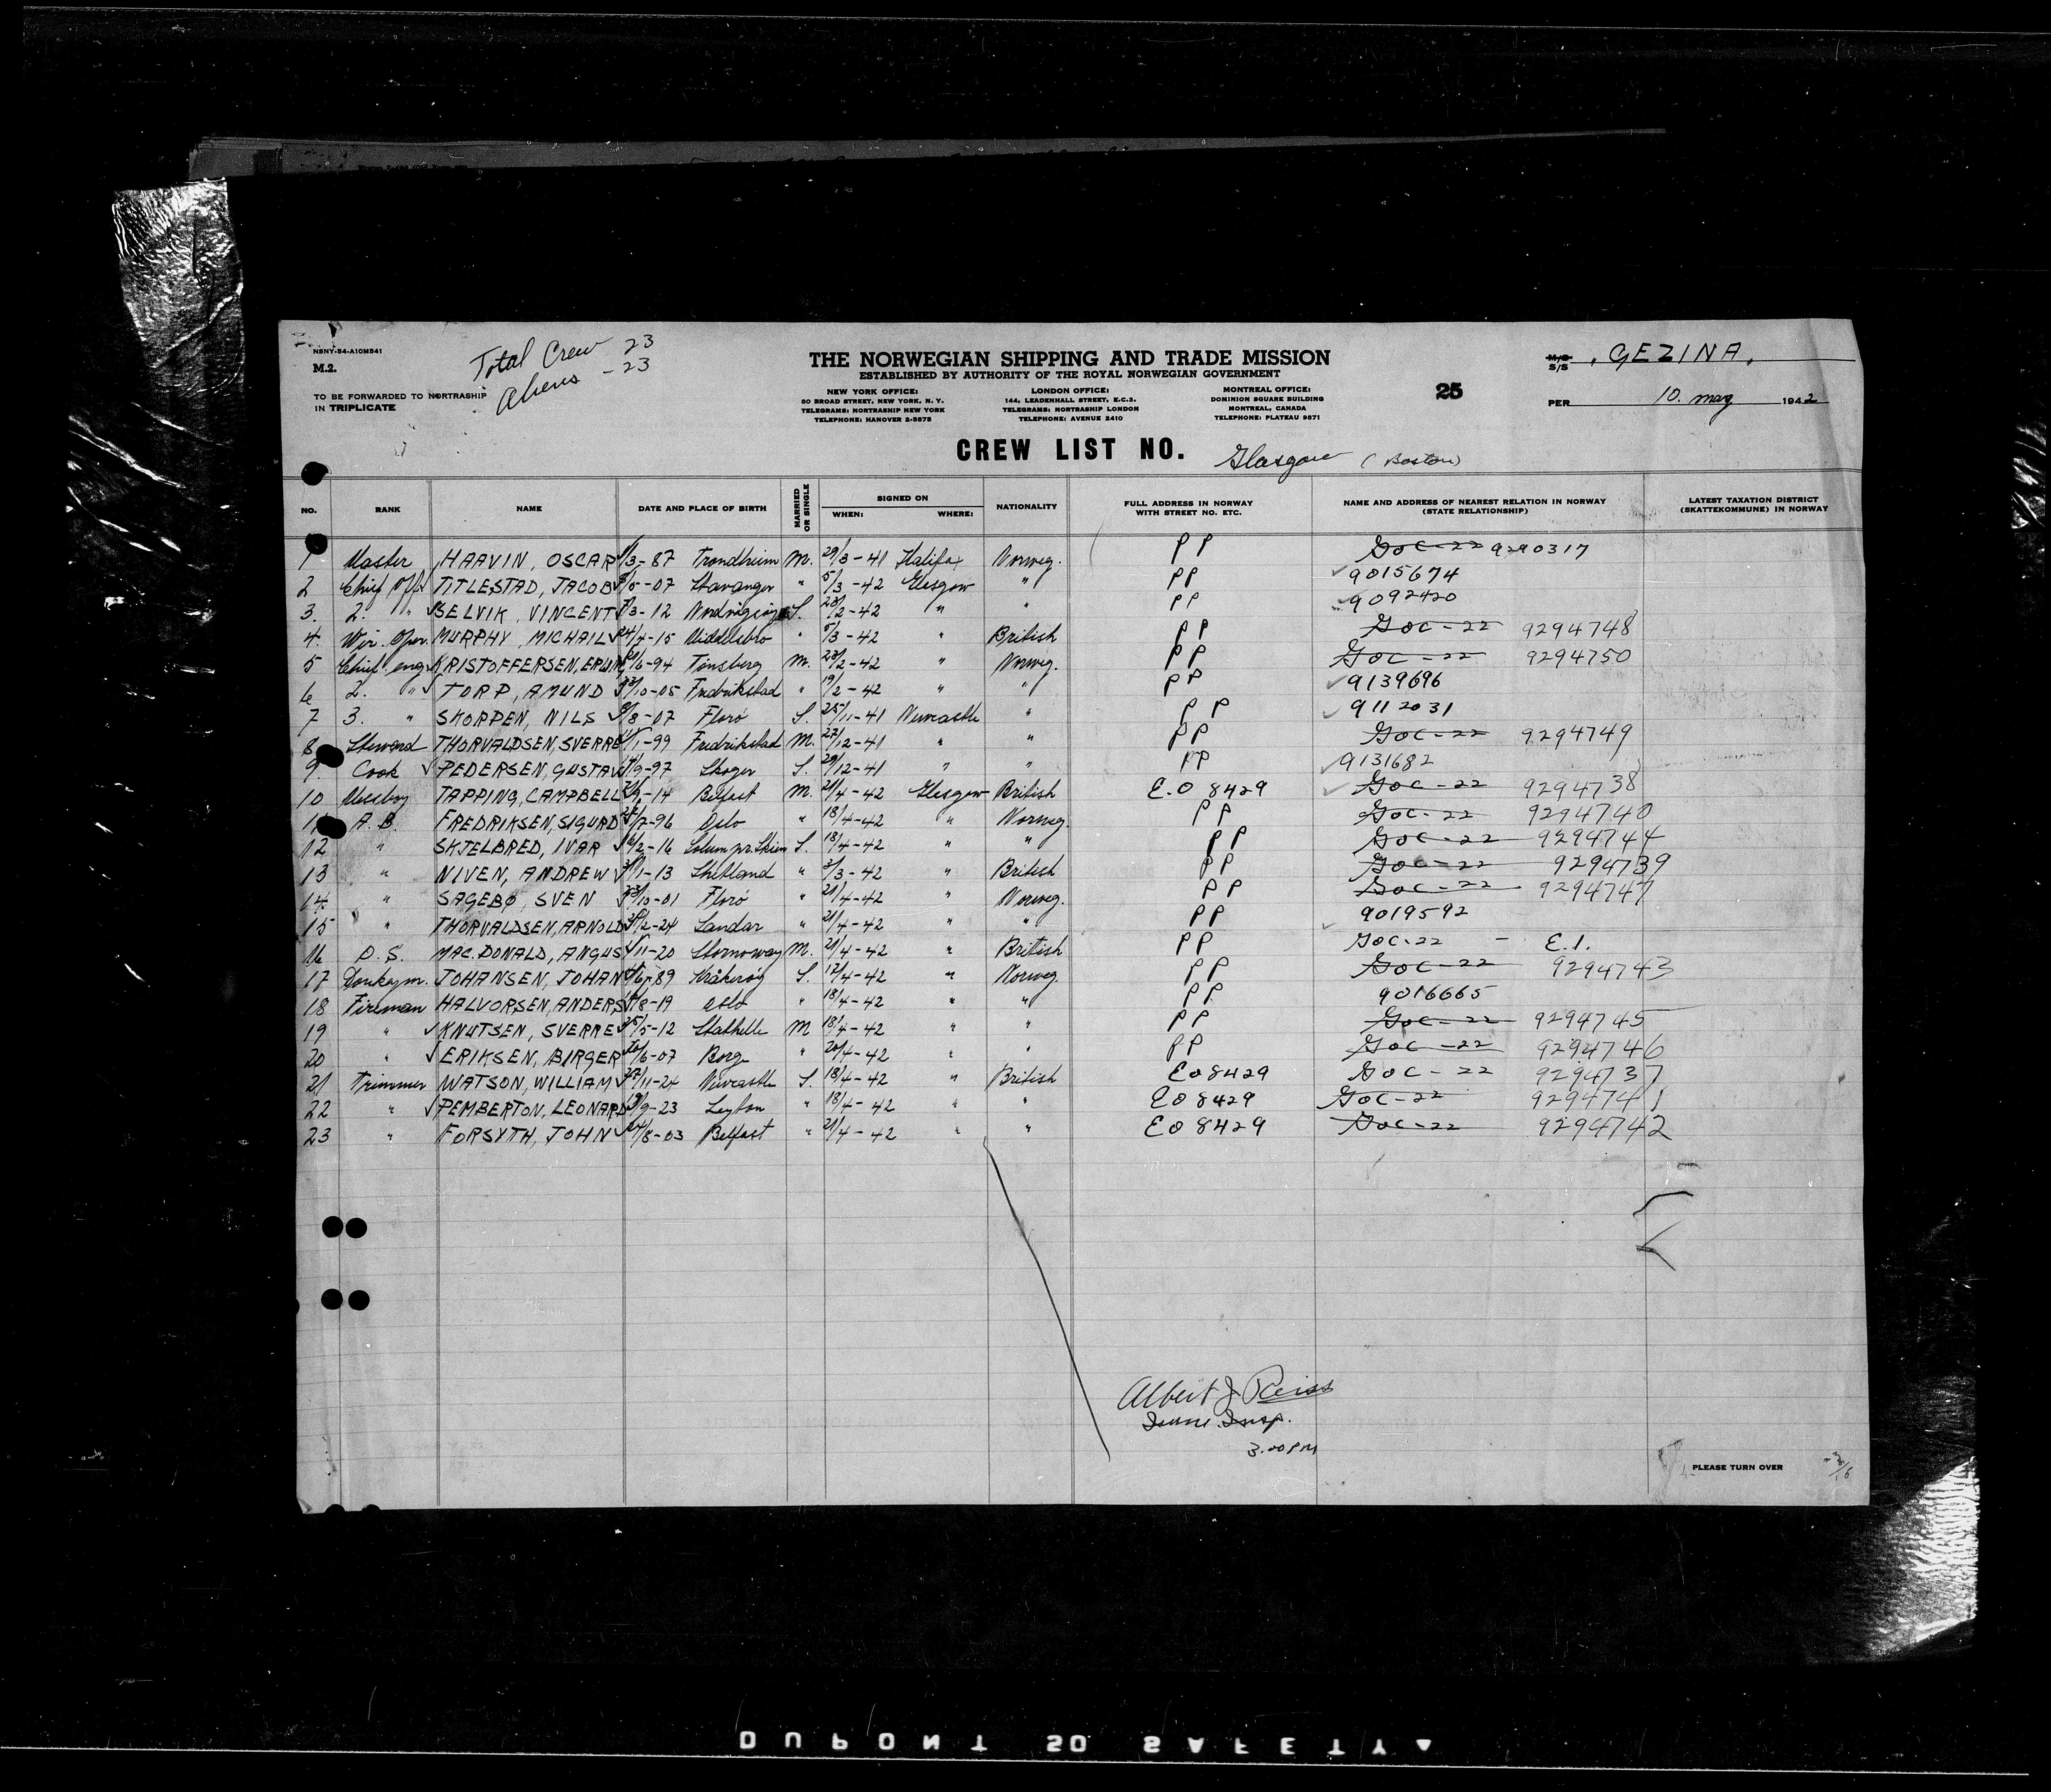 NSNY-54-A10M541
M.2.
TO BE FORWARDED TO NORTRASHIP
IN TRIPLICATE
Total Crew 23
Aliens - 23
THE NORWEGIAN SHIPPING AND TRADE MISSION
ESTABLISHED BY AUTHORITY OF THE ROYAL NORWEGIAN GOVERNMENT
NEW YORK OFFICE:
80 BROAD STREET, NEW YORK, N. Y.
TELEGRAMS: NORTRASHIP NEW YORK
TELEPHONE: HANOVER 2-5675
LONDON OFFICE:
144, LEADENHALL STREET, E.C.3.
TELEGRAMS: NORTRASHIP LONDON
TELEPHONE: AVENUE 2410
MONTREAL OFFICE:
DOMINION SQUARE BUILDING
MONTREAL, CANADA
TELEPHONE: PLATEAU 9671
25
M/S
S/S GEZINA.
PER 10. may 1942
CREW LIST NO. Glasgow (Boston)
NO. RANK NAME DATE AND PLACE OF BIRTH MARRIED OR SINGLE SIGNED ON WHEN: WHERE: NATIONALITY FULL ADDRESS IN NORWAY WITH STREET NO. ETC. NAME AND ADDRESS OF NEAREST RELATION IN NORWAY (STATE RELATIONSHIP) LATEST TAXATION DISTRICT (SKATTEKOMMUNE) IN NORWAY
1 Master HAAVIN, OSCAR /3-87 Trondheim M. 29/3-41 Halifax Norweg. PP GOC-22 9290317
2 Chief Off. TITLESTAD, JACOB /5-07 Stavanger " 5/3-42 Glasgow " PP 9015674
3. 2. " SELVIK, VINCENT /3-12 S. 28/2-42 " " PP 9092420
4. Wir. Oper. MURPHY, MICHAIL 24/4-15 Middlesbro " 5/3-42 " British PP GOC-22 9294748
5 Chief eng. KRISTOFFERSEN, /6-94 Tønsberg M. 23/2-42 " Norweg. PP GOC-22 9294750
6 2. " TORP, AMUND /10-05 Fredrikstad " 19/2-42 " " PP 9139696
7 3. " SKORPEN, NILS /8-07 Florø S. 25/11-41 Newcastle " PP 9112031
8 Steward THORVALDSEN, SVERRE /1-99 Fredrikstad M. 27/12-41 " " PP GOC-22 9294749
9. Cook PEDERSEN, GUSTAV /9-97 Skoger S. 29/12-41 " " PP 9131682
10 Messboy TAPPING, CAMPBELL -14 Belfast M. 21/4-42 Glasgow British E.O 8429 GOC-22 9294738
11 A.B. FREDRIKSEN, SIGURD /7-96 Oslo " 18/4-42 " Norweg. PP GOC-22 9294740
12 " SKJELBRED, IVAR 16/2-16 Solum pr. Skien S. 18/4-42 " " PP GOC-22 9294744
13 " NIVEN, ANDREW /1-13 Shetland " 3/3-42 " British PP GOC-22 9294739
14. " SAGEBØ, SVEN 23/10-01 Florø " 21/4-42 " Norweg. PP GOC-22 9294747
15 " THORVALDSEN, ARNOLD /2-24 Sandar " 21/4-42 " " PP 9019592
16 D.S. MAC.DONALD, ANGUS /11-20 Stornoway M. 21/4-42 " British PP GOC-22 - E.I.
17 Donkeym. JOHANSEN, JOHAN /6-89 Kråkerøy S. 17/4-42 " Norweg. PP GOC-22 9294743
18 Fireman HALVORSEN, ANDERS /8-19 Oslo " 18/4-42 " " PP 9016665
19 " KNUTSEN, SVERRE 25/5-12 Stathelle M 18/4-42 " " PP GOC-22 9294745
20 " ERIKSEN, BIRGER 20/6-07 Borge " 20/4-42 " " PP GOC-22 9294746
21 Trimmer WATSON, WILLIAM 27/11-24 Newcastle S. 18/4-42 " British EO 8429 GOC-22 9294737
22 " PEMBERTON, LEONARD /9-23 Leyton " 18/4-42 " " EO 8429 GOC-22 9294741
23 " FORSYTH, JOHN 24/8-03 Belfast " 21/4-42 " " EO 8429 GOC-22 9294742
Albert J Reiss
Insp.
3.00 PM
PLEASE TURN OVER
DUPONT SO SAFETY